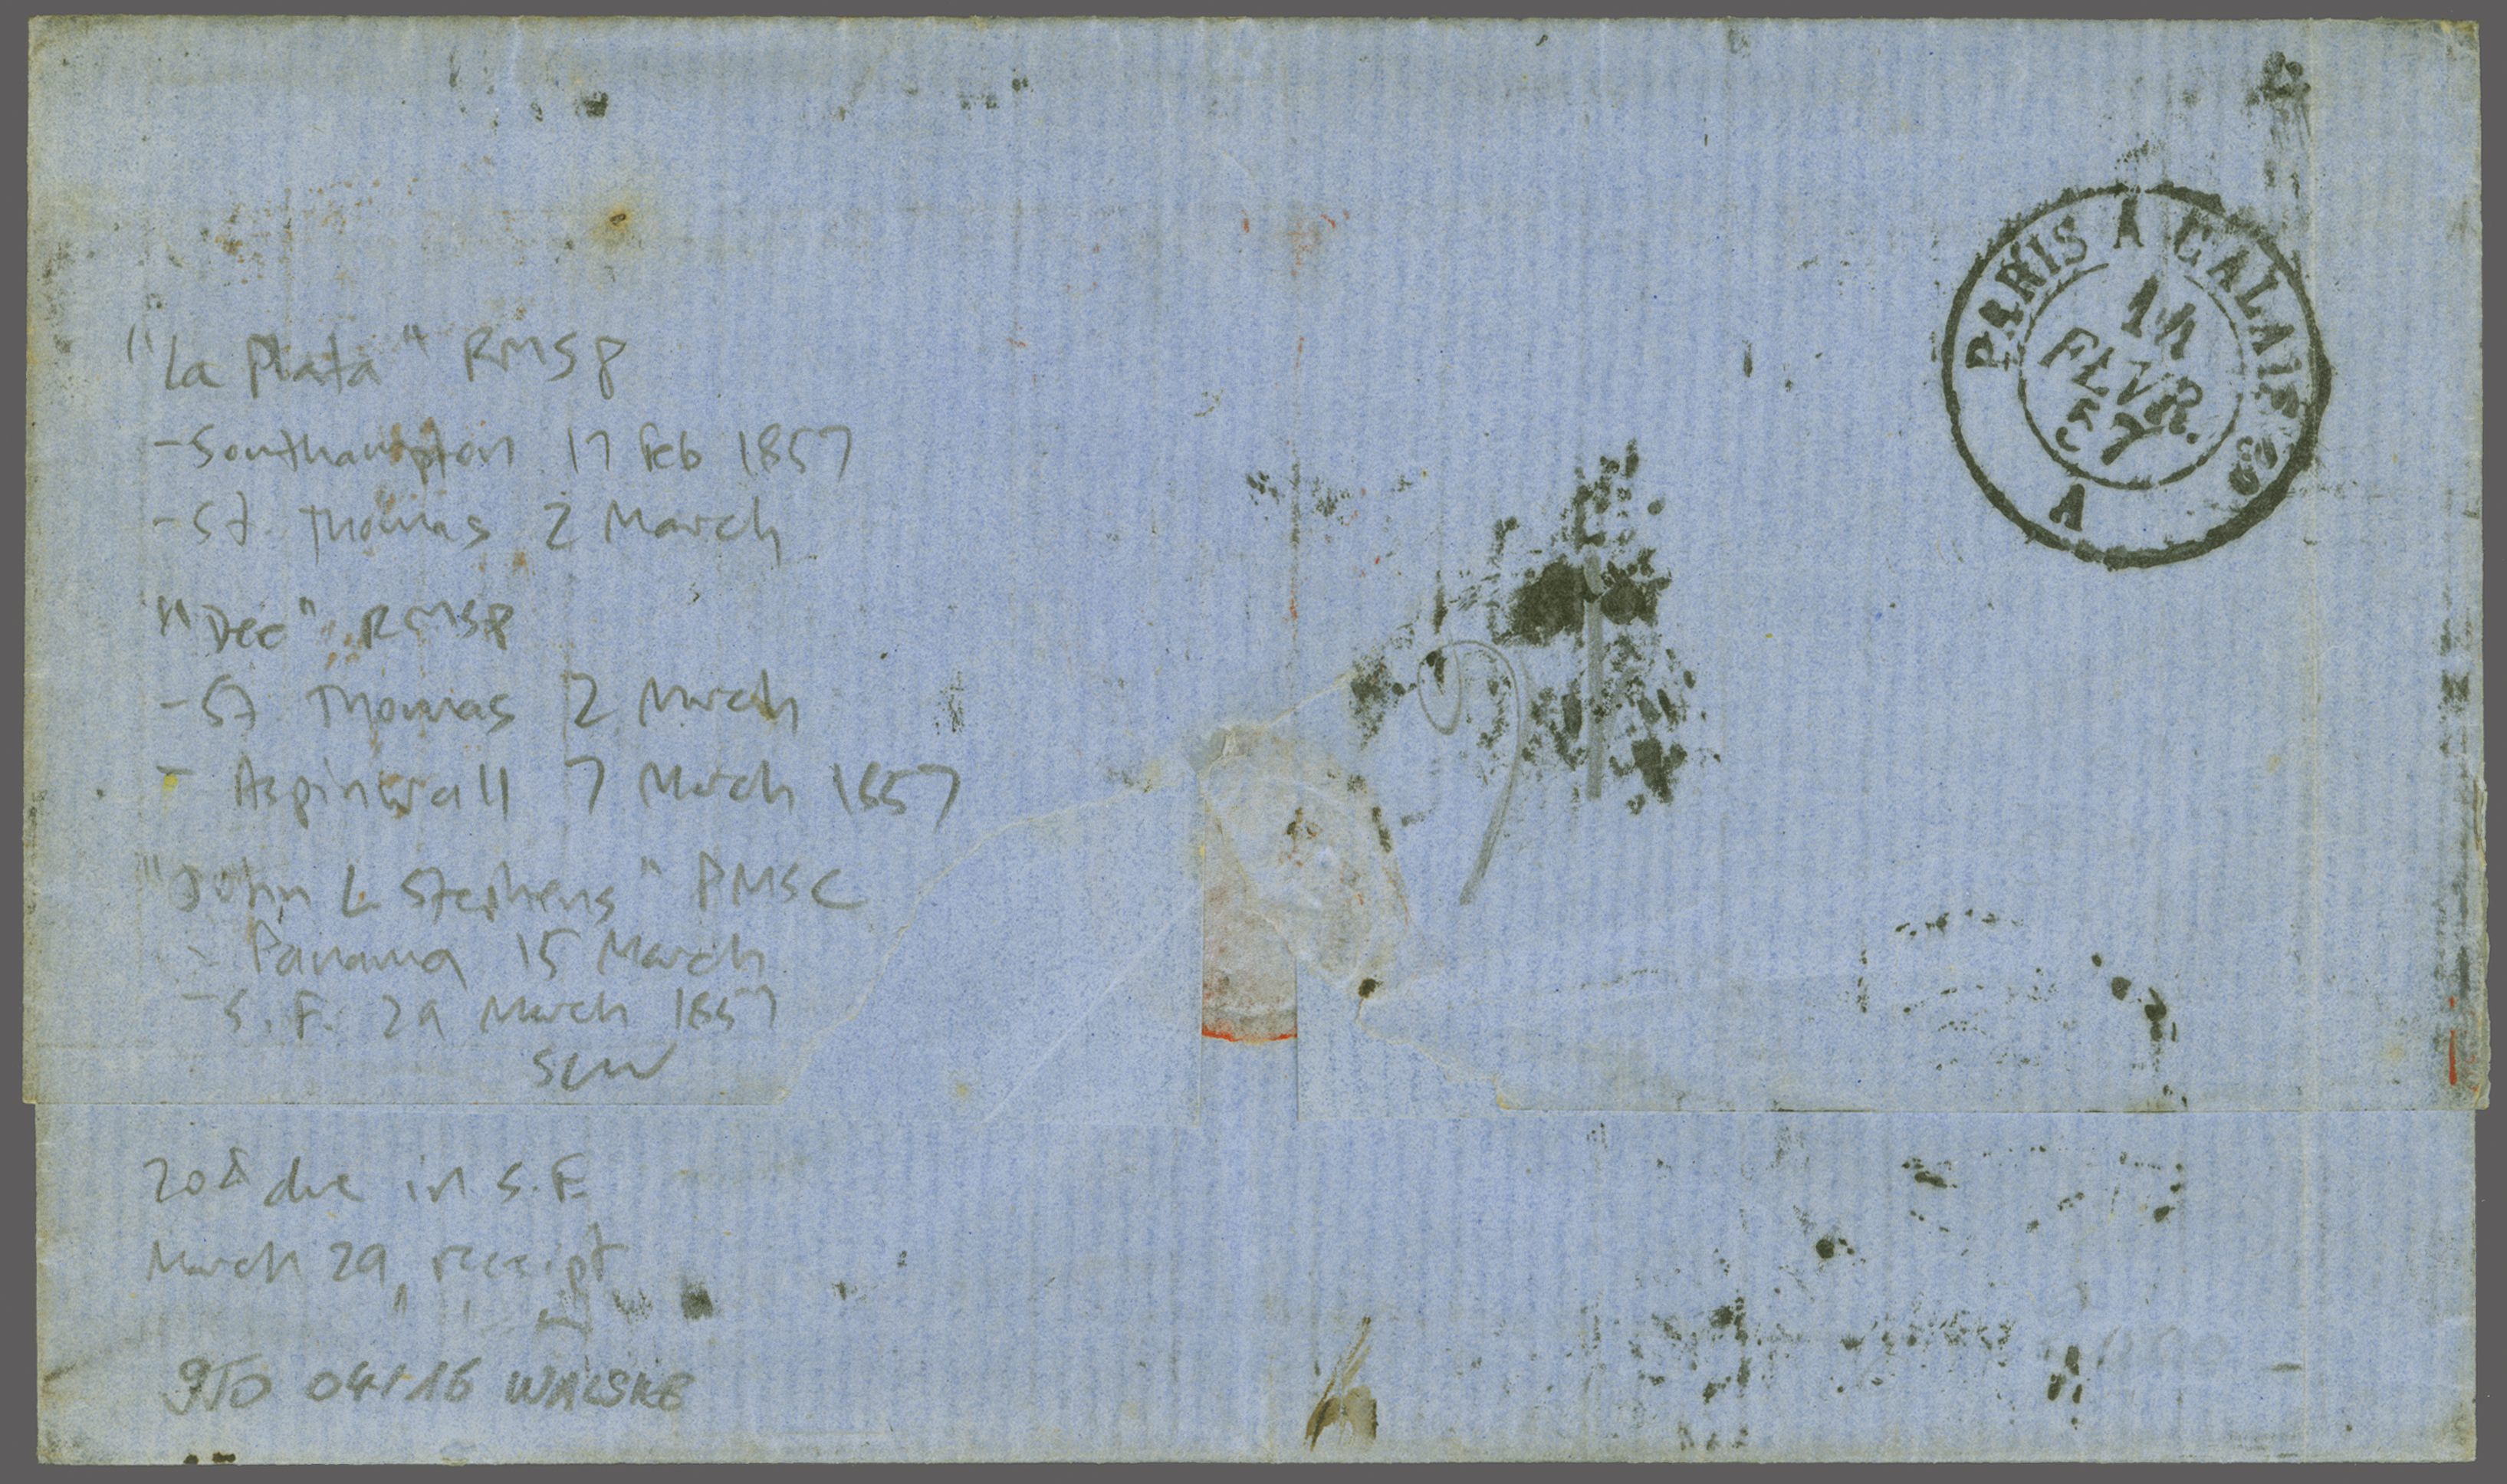 "La Plata" RMSP
- Southampton 17 Feb 1857
- St. Thomas 2 March
"Dee" RMSP
- St Thomas 2 March
- Aspinwall 7 March 1857
"John L. Stephens" PMSC
- Panama 15 March
- S. F. 29 March 1857
SCW
20¢ due in S.F.
March 29, receipt
04/16 WALSKE
PARIS A CALAIS
FEVR.
57
A